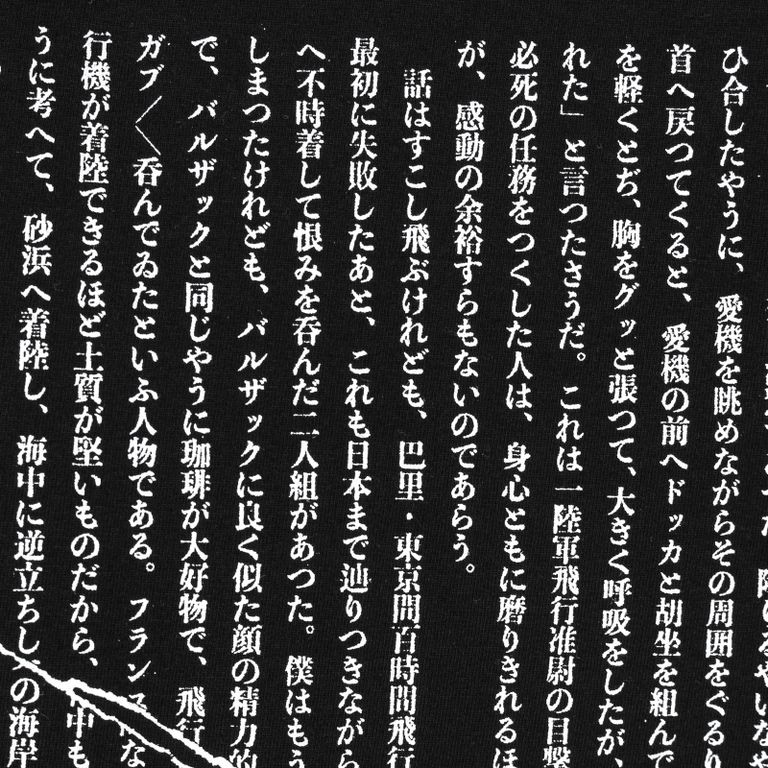 ひ合したやうに、愛機を眺めながらその周囲をぐるり
首へ戻つてくると、愛機の前へドッカと胡坐を組んで
を軽くとぢ、胸をグッと張つて、大きく呼吸をしたが、
れた」と言つたさうだ。これは一陸軍飛行准尉の目撃
必死の任務をつくした人は、身心ともに磨りきれるほ
が、感動の余裕すらもないのであらう。
話はすこし飛ぶけれども、巴里・東京間百時間飛行
最初に失敗したあと、これも日本まで辿りつきながら
へ不時着して恨みを呑んだ二人組があつた。僕はもう
しまつたけれども、バルザックに良く似た顔の精力的
で、バルザックと同じやうに珈琲が大好物で、飛行
ガブ〳〵呑んでゐたといふ人物である。フランス
行機が着陸できるほど土質が堅いものだから、中も
うに考へて、砂浜へ着陸し、海中に逆立ちし の海岸